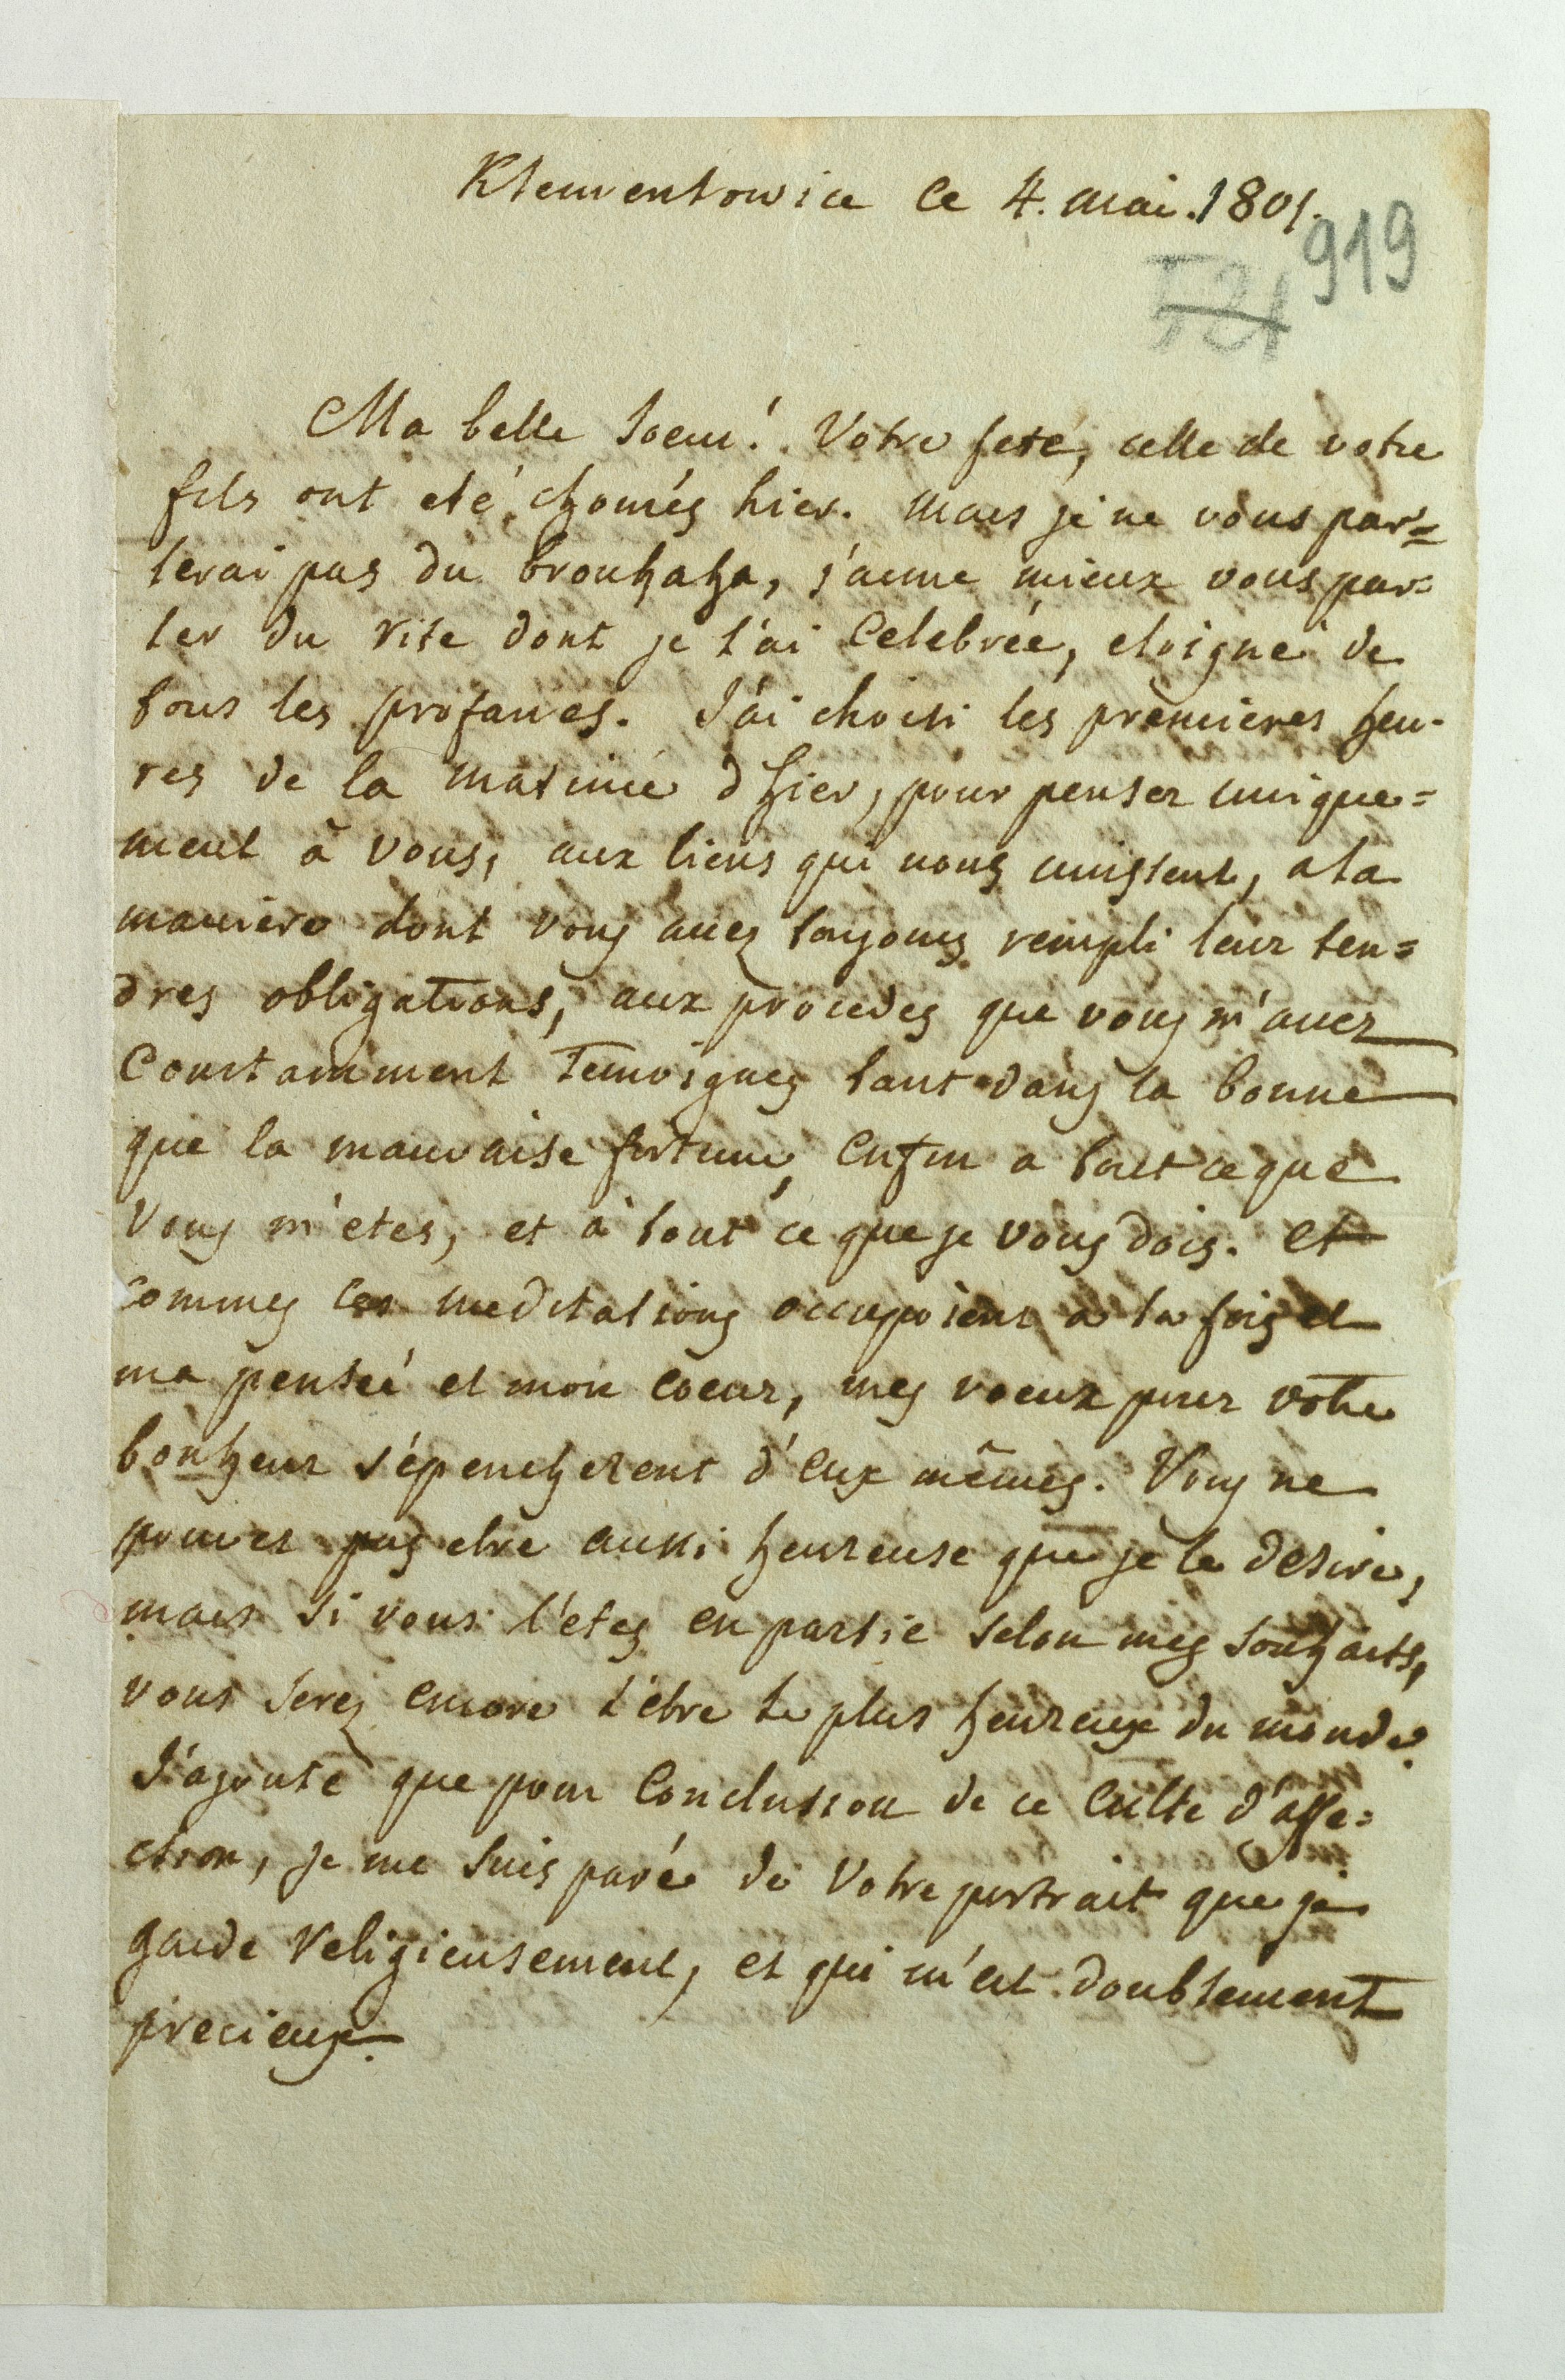 Klementowice ce 4. mai. 1801.
919
521
Ma belle soeur! Votre feté, celle de votre
fils ont eté chomés hier. Mais je ne vous par=
lerai pas du brouhaha, j'aime mieux vous par=
ler du rite dont je l'ai celebrée, eloigné de
tous les profanes. J'ai choisi les premieres heu-
res de la matinée d hier, pour penser unique=
ment à vous, aux liens qui nous unissent, a la
maniere dont vous avez toujours rempli leur ten=
dres obligations, aux procedes que vous m'avez
constamment temoignes tant dans la bonne
que la mauvaise fortune, enfin a tout ce que
vous m'etes, et à tout ce que je vous dois. et
commes ces meditations occupoient a la fois et
ma penseé et mon coeur, mes voeux pour votre
bonheur s'épencherent d'eux mêmes. Vous ne
pouvez pas etre aussi heureuse que je le desire,
mais si vous l'etes en partie selon mes souhaits,
vous serez encore l'etre le plus heureux du monde.
J'ajoute que pour conclusion de ce culte d'affe=
ction, je me suis parée de votre portrait que je
garde religieusement, et qui m'est doublement
precieux.